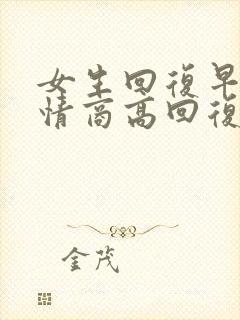 女生回復早
情商高回復
金茂